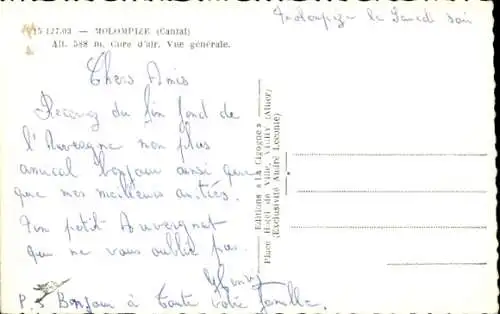 15-127.03 — MOLOMPIZE (Cantal)
Alt. 588 m. Cure d'air. Vue générale.
Molompize le Samedi soir
Chers Amis
Recevez du fin fond de
l'Auvergne mon plus
amical bonjour ainsi que
que mes meilleures amitiés.
Un petit Auvergnat
qui ne vous oublie pas.
Henry
P.S Bonjour à toute votre famille.
Editions « LA CIGOGNE »
Place Hôtel de Ville, Vichy (Allier)
(Exclusivité André Leconte)